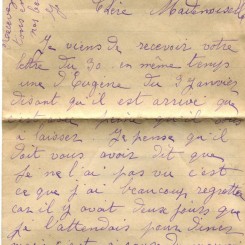 Chère Mademoiselle
Je viens de recevoir votre
lettre du 30 en même temps
une d'Eugène du 9 janvier
disant qu'il est arrivé que
à laisser Je pense qu'il
doit vous avoir dit que
Je ne l'ai pas vu c'est
ce que j'ai beaucoup regretté
car il y avait deux jours que
je l'attendais pour diner